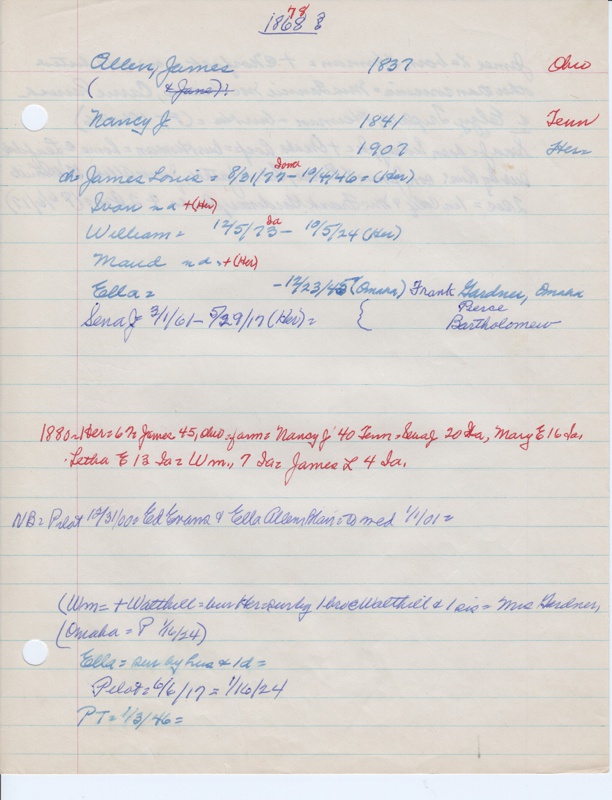 78
1868 ?
Allen, James 1837 Ohio
( & Jane)?
Nancy J. 1841 Tenn
1907 Her
ch = James Louis = 8/31/77 Iowa - 10/4/46 = (Her)
Ivan n d +(Her)
William = 12/5/73 Ia - 10/5/24 (Her)
Maud n d. +(Her)
Ella = -12/23/45 (Omaha) Frank Gardner, Omaha
Sena J 3/1/61 - 5/29/17 (Her) = { Pierce
Bartholomew
1880 = Her = 67 = James 45, Ohio = farm = Nancy J 40 Tenn = Sena J 20 Ia, Mary E 16 Ia.
Letha E 13 Ia = Wm., 7 Ia = James L 4 Ia.
NB = Pilot 12/31/00 = Ed Evans & Ella Allen med 1/1/01 =
(Wm = + Walthill = bur Her = sur by 1 bro Walthill & 1 sis = Mrs Gardner,
(Omaha = P 1/16/24)
Ella = sur by hus & 1 d =
Pilot = 6/6/17 = 1/16/24
PT = 1/3/46 =